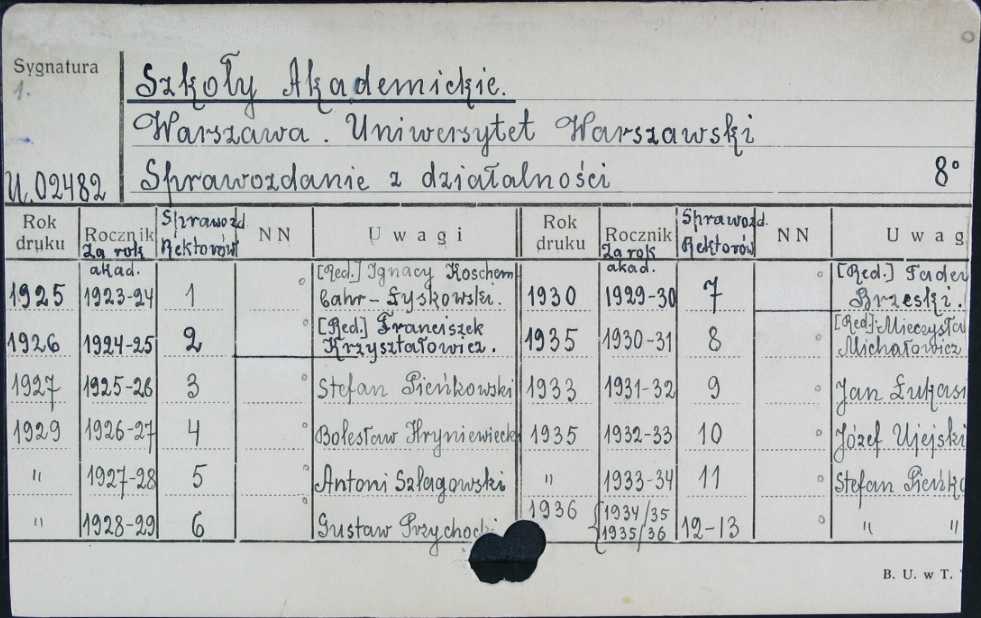 Sygnatura
1.
U.02482
Szkoły Akademickie.
Warszawa. Uniwersytet Warszawski
Sprawozdanie z działalności 8°
Rok druku Rocznik Za rok akad. Sprawozd. Rektorów NN Uwagi Rok druku Rocznik Za rok akad. Sprawozd. Rektorów NN Uwag
1925 1923-24 1 ° [Red.] Ignacy Koschem
Bahr-Łyskowski. 1930 1929-30 7 ° [Red.] Tade
Brzeski.
1926 1924-25 2 ° [Red.] Franciszek
Krzyształowicz. 1935 1930-31 8 ° [Red.] Mieczysła
Michałowicz
1927 1925-26 3 ° Stefan Pieńkowski 1933 1931-32 9 ° Jan Łukasi
1929 1926-27 4 ° Bolesław Hryniewieck 1935 1932-33 10 ° Józef Ujejski
" 1927-28 5 ° Antoni Szlagowski " 1933-34 11 ° Stefan Pieńko
" 1928-29 6 ° Gustaw Przychocki 1936 {1934/35
1935/36 12-13 ° " "
B. U. w T.